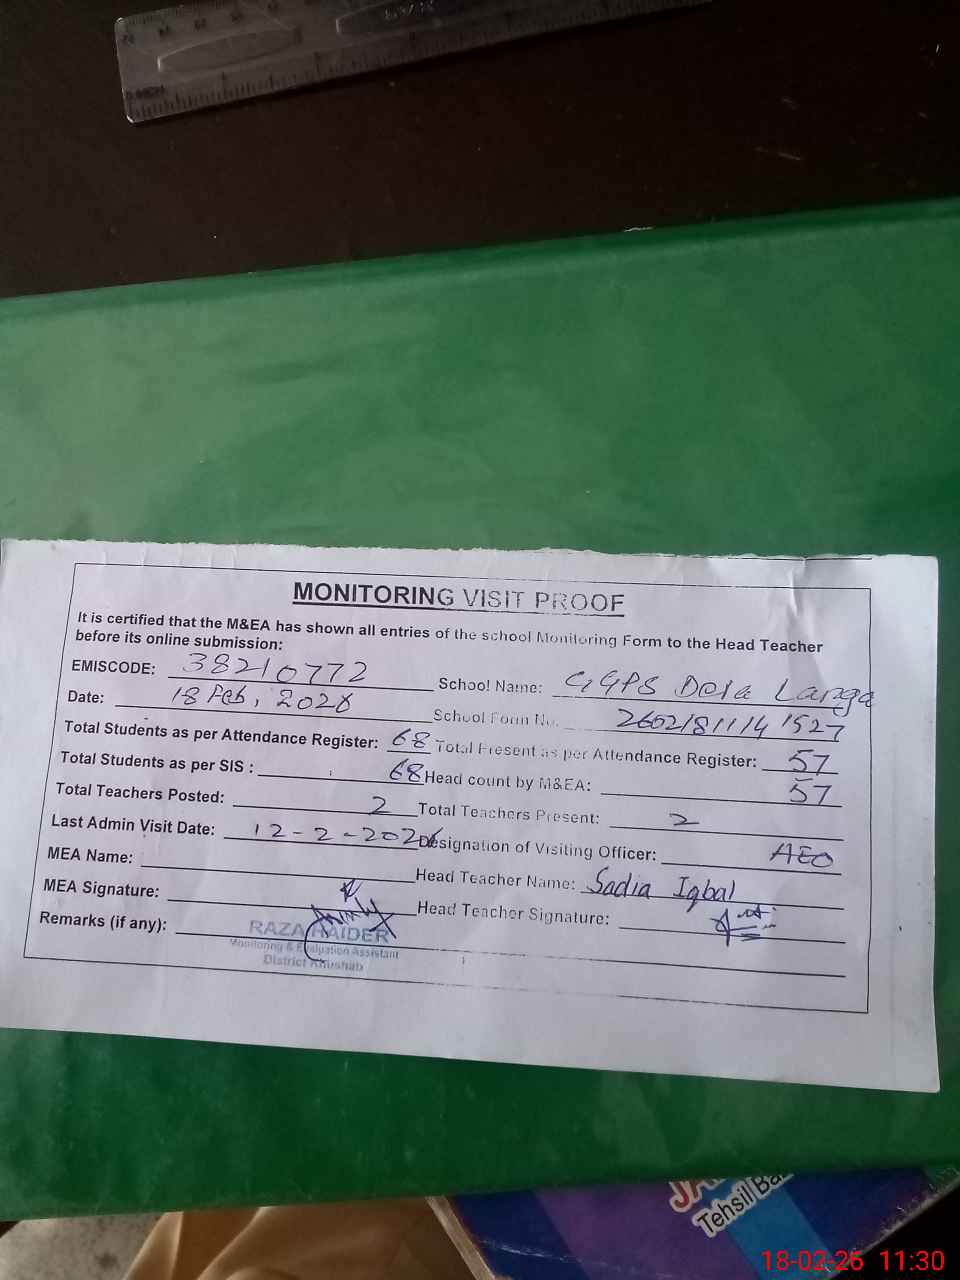 MONITORING VISIT PROOF
It is certified that the M&EA has shown all entries of the school Monitoring Form to the Head Teacher
before its online submission:
EMISCODE: 38210772 School Name: GGPS Dera Langa
Date: 18 Feb, 2026 School Form No. 26021811141527
Total Students as per Attendance Register: 68 Total Present as per Attendance Register: 57
Total Students as per SIS : 68 Head count by M&EA: 57
Total Teachers Posted: 2 Total Teachers Present: 2
Last Admin Visit Date: 12-2-2026 Designation of Visiting Officer: AEO
MEA Name: Head Teacher Name: Sadia Iqbal
MEA Signature: Head Teacher Signature:
Remarks (if any):
RAZA HAIDER
Monitoring & Evaluation Assistant
District Khushab
Tehsil
18-02-26 11:30